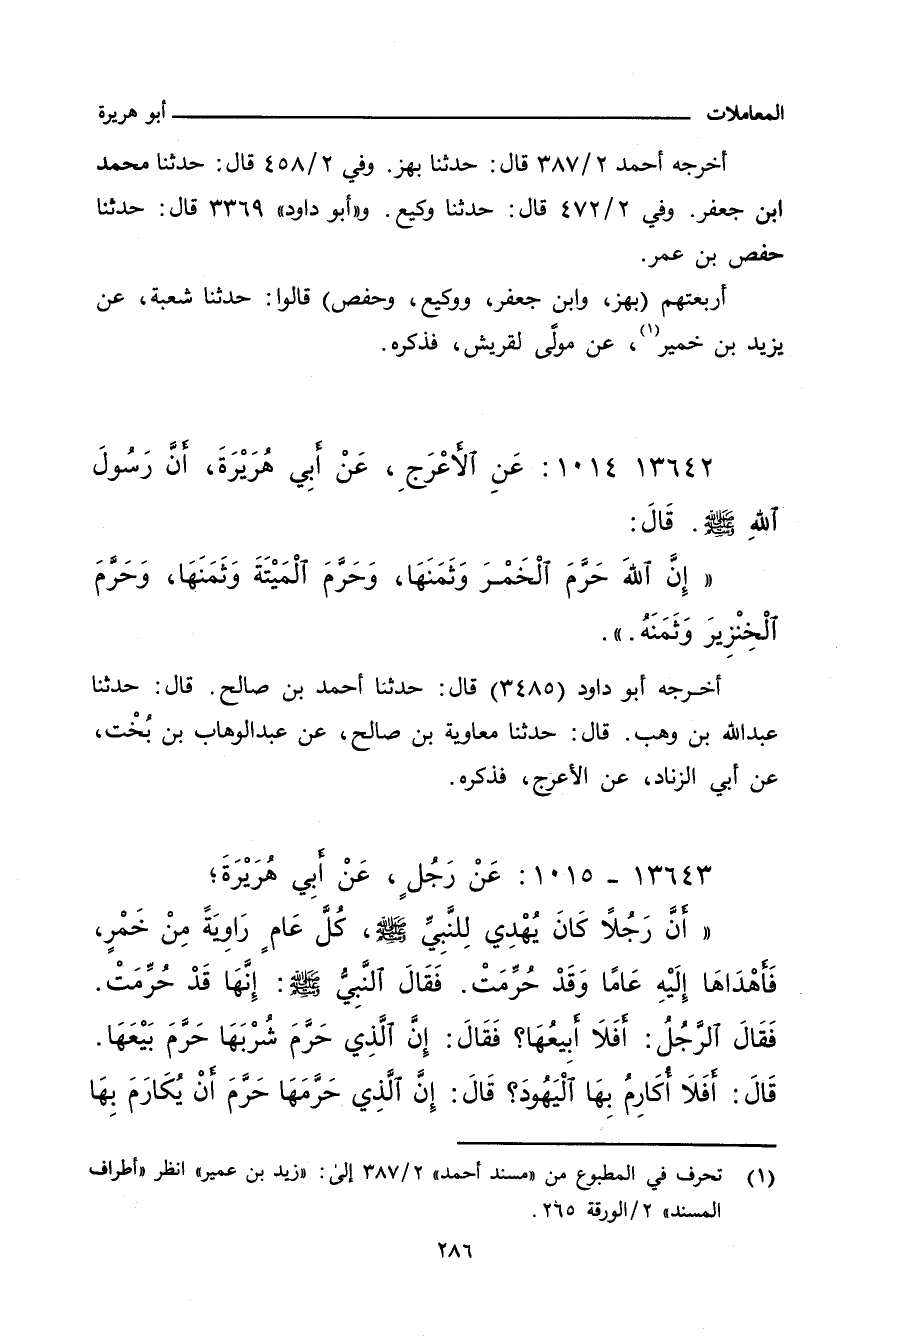 المعاملات ــــــــــــــــــــ أبو هريرة
أخرجه أحمد ٣٨٧/٢ قال: حدثنا بهز. وفي ٤٥٨/٢ قال: حدثنا محمد
ابن جعفر. وفي ٤٧٢/٢ قال: حدثنا وكيع. و«أبو داود» ٣٣٦٩ قال: حدثنا
حفص بن عمر.
أربعتهم (بهز، وابن جعفر، ووكيع، وحفص) قالوا: حدثنا شعبة، عن
يزيد بن خمير(١)، عن مولًى لقريش، فذكره.
١٣٦٤٢ ١٠١٤: عَنِ ٱلْأَعْرَجِ، عَنْ أَبِي هُرَيْرَةَ، أَنَّ رَسُولَ
ٱللهِ ﷺ. قَالَ:
« إِنَّ ٱللهَ حَرَّمَ ٱلْخَمْرَ وَثَمَنَهَا، وَحَرَّمَ ٱلْمَيْتَةَ وَثَمَنَهَا، وَحَرَّمَ
ٱلْخِنْزِيرَ وَثَمَنَهُ.».
أخرجه أبو داود (٣٤٨٥) قال: حدثنا أحمد بن صالح. قال: حدثنا
عبدالله بن وهب. قال: حدثنا معاوية بن صالح، عن عبدالوهاب بن بُخْت،
عن أبي الزناد، عن الأعرج، فذكره.
١٣٦٤٣ - ١٠١٥: عَنْ رَجُلٍ، عَنْ أَبِي هُرَيْرَةَ؛
« أَنَّ رَجُلًا كَانَ يُهْدِي لِلنَّبِيِّ ﷺ، كُلَّ عَامٍ رَاوِيَةً مِنْ خَمْرٍ،
فَأَهْدَاهَا إِلَيْهِ عَامًا وَقَدْ حُرِّمَتْ. فَقَالَ ٱلنَّبِيُّ ﷺ: إِنَّهَا قَدْ حُرِّمَتْ.
فَقَالَ ٱلرَّجُلُ: أَفَلَا أَبِيعُهَا؟ فَقَالَ: إِنَّ ٱلَّذِي حَرَّمَ شُرْبَهَا حَرَّمَ بَيْعَهَا.
قَالَ: أَفَلَا أُكَارِمُ بِهَا ٱلْيَهُودَ؟ قَالَ: إِنَّ ٱلَّذِي حَرَّمَهَا حَرَّمَ أَنْ يُكَارَمَ بِهَا
(١) تحرف في المطبوع من «مسند أحمد» ٣٨٧/٢ إلىٰ: «زيد بن عمير» انظر «أطراف
المسند» ٢/الورقة ٢٦٥.
٢٨٦